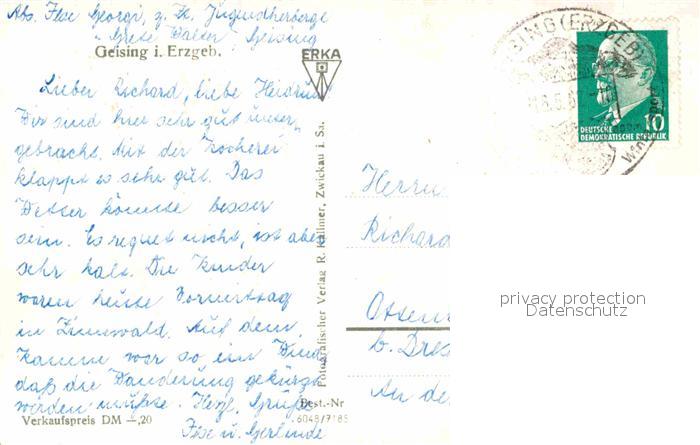 Abs. Ilse Georgi, z. Zt. Jugendherberge
"Grete Walter" Geising
Geising i. Erzgeb.
ERKA
Lieber Richard, liebe Heidrun
Wir sind hier sehr gut unter-
gebracht. Mit der Kocherei
klappt es sehr gut. Das
Wetter könnte besser
sein. Es regnet nicht, ist aber
sehr kalt. Die Kinder
waren heute Vormittag
in Zinnwald. Auf dem
Kamm war so ein Wind,
daß die Wanderung gekürzt
werden mußte. Herzl. Grüße
Ilse u. Gerlinde
Verkaufspreis DM —,20
Best.-Nr
6048/7185
Fotografischer Verlag R. Kallmer, Zwickau i. Sa.
Herrn
Richard
b. Dres
An de
(ERZGEB)
DEUTSCHE
DEMOKRATISCHE REPUBLIK
10
privacy protection
Datenschutz